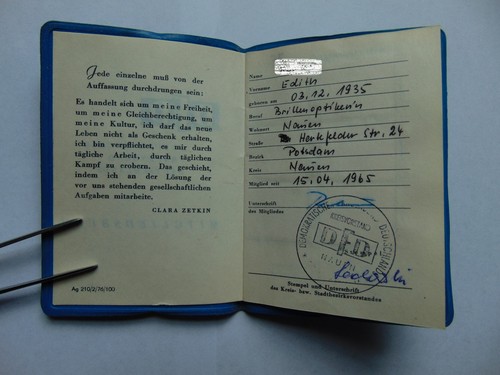 Jede einzelne muß von der
Auffassung durchdrungen sein:
Es handelt sich um meine Freiheit,
um meine Gleichberechtigung, um
meine Kultur, ich darf das neue
Leben nicht als Geschenk erhalten,
ich bin verpflichtet, es mir durch
tägliche Arbeit, durch täglichen
Kampf zu erobern. Das geschieht,
indem ich an der Lösung der
vor uns stehenden gesellschaftlichen
Aufgaben mitarbeite.
CLARA ZETKIN
Ag 210/2/76/100
Name
Vorname Edith
geboren am 03.12.1935
Beruf Brillenoptikerin
Wohnort Nauen
Straße Hertefelder Str. 24
Bezirk Potsdam
Kreis Nauen
Mitglied seit 15.04.1965
Unterschrift
des Mitgliedes
DEMOKRATISCHER DEUTSCHLANDS
KREISVORSTAND
DFD
NAUEN
Stempel und Unterschrift
des Kreis- bzw. Stadtbezirksvorstandes